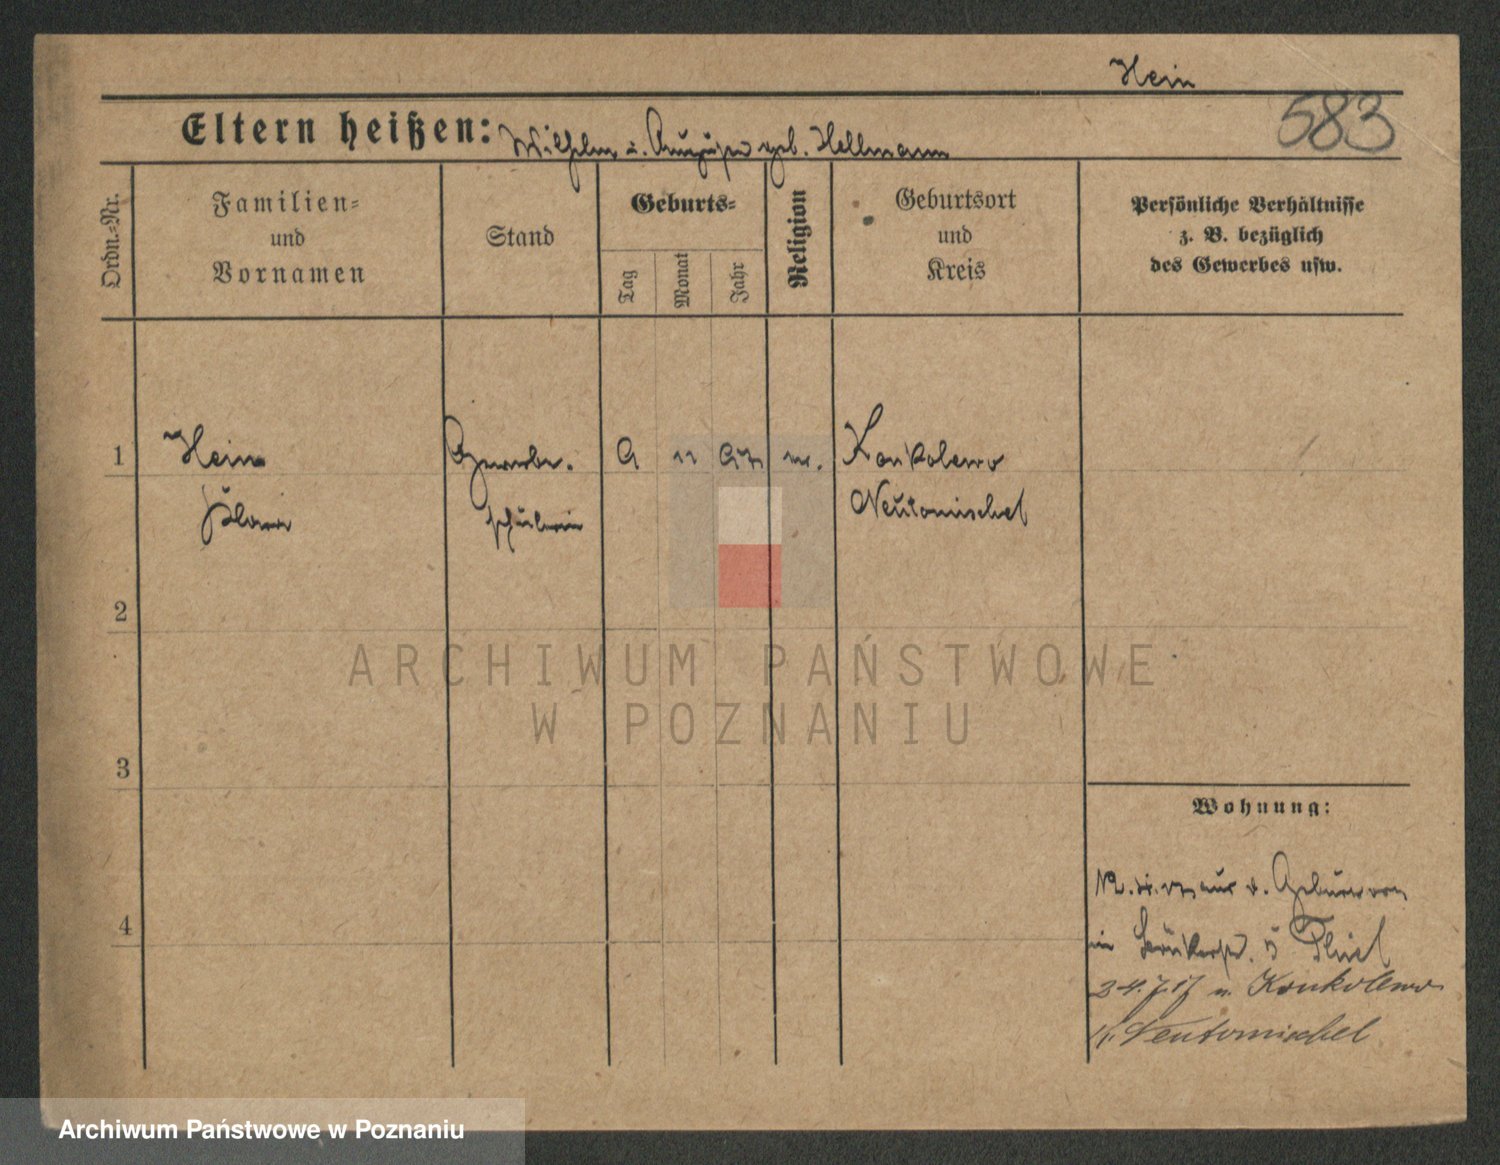 Hein
583
Eltern heißen: Wilhelm u. geb. Hellmann
Ordn.-Nr.
Familien-
und
Vornamen
Stand
Geburts-
Tag
Monat
Jahr
Religion
Geburtsort
und
Kreis
Persönliche Verhältnisse
z. B. bezüglich
des Gewerbes usw.
1
Hein
Gewerbe-
Konkolewo
schülerin
Neutomischel
2
ARCHIWUM PAŃSTWOWE
W POZNANIU
3
Wohnung:
4
v. Geburtsort
5 Thiel
24.7.17 n. Konkolewo
Neutomischel
Archiwum Państwowe w Poznaniu